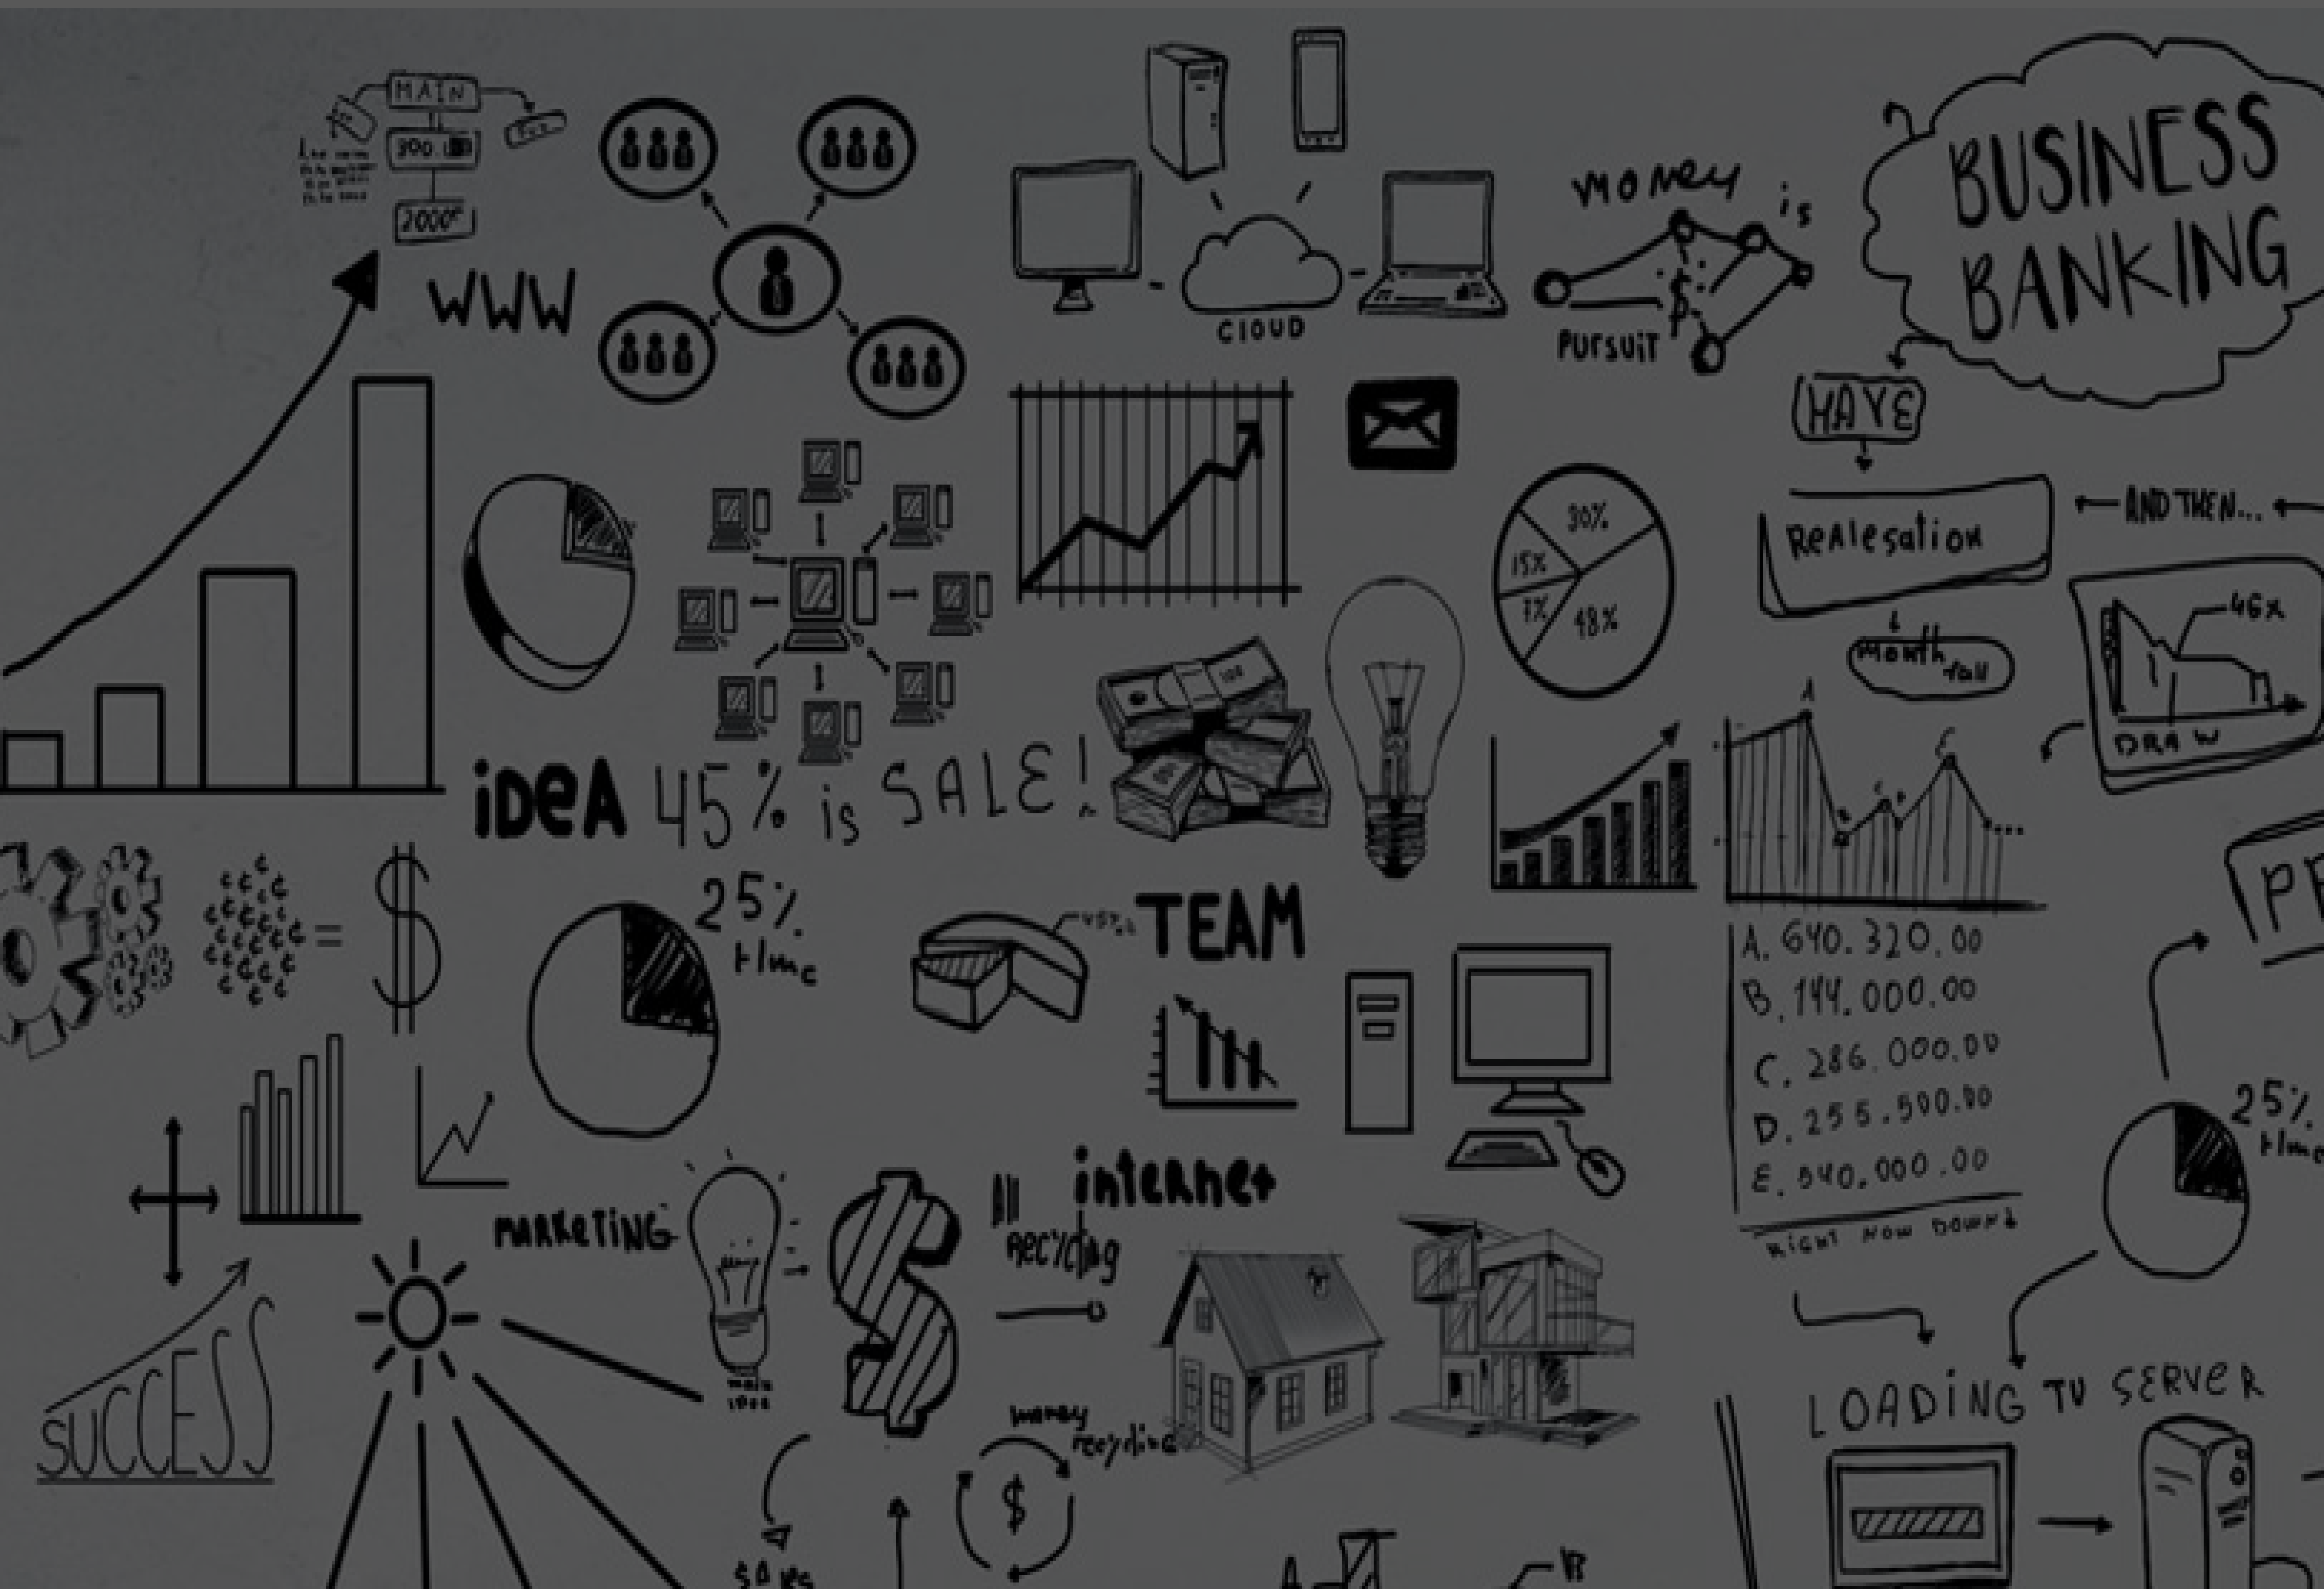 MAIN
2000
WWW
CLOUD
MONEY is
PURSUIT
$
BUSINESS
BANKING
HAVE
Realesation
AND THEN...
Month
30%
15%
7%
48%
46%
DRAW
A
100
iDeA
45% is SALE!
= $
25%
time
45%
TEAM
A. 640.320.00
B. 144.000.00
C. 286.000.00
D. 255.500.00
E. 540.000.00
RIGHT NOW DOWN
25%
time
MARKETiNG
All
internet
RECYcling
main
money
recycling
$
SUCCESS
LOADiNG TV SERVeR
SALes
A
B